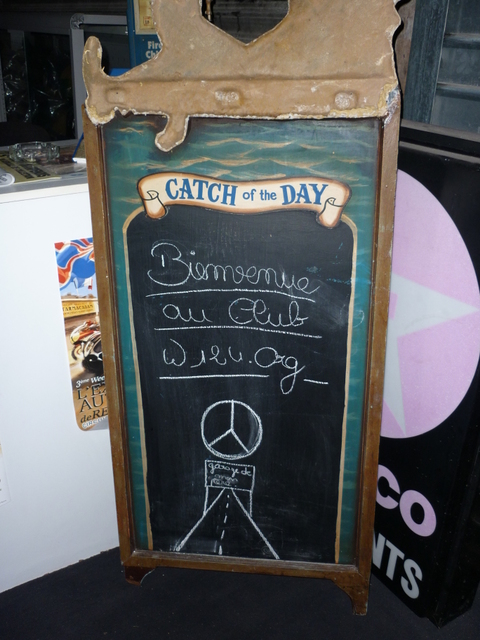 CATCH of the DAY
Bienvenue
au Club
W124.Org_
garage de
3ème
L'E
AU
de RE
CO
NTS